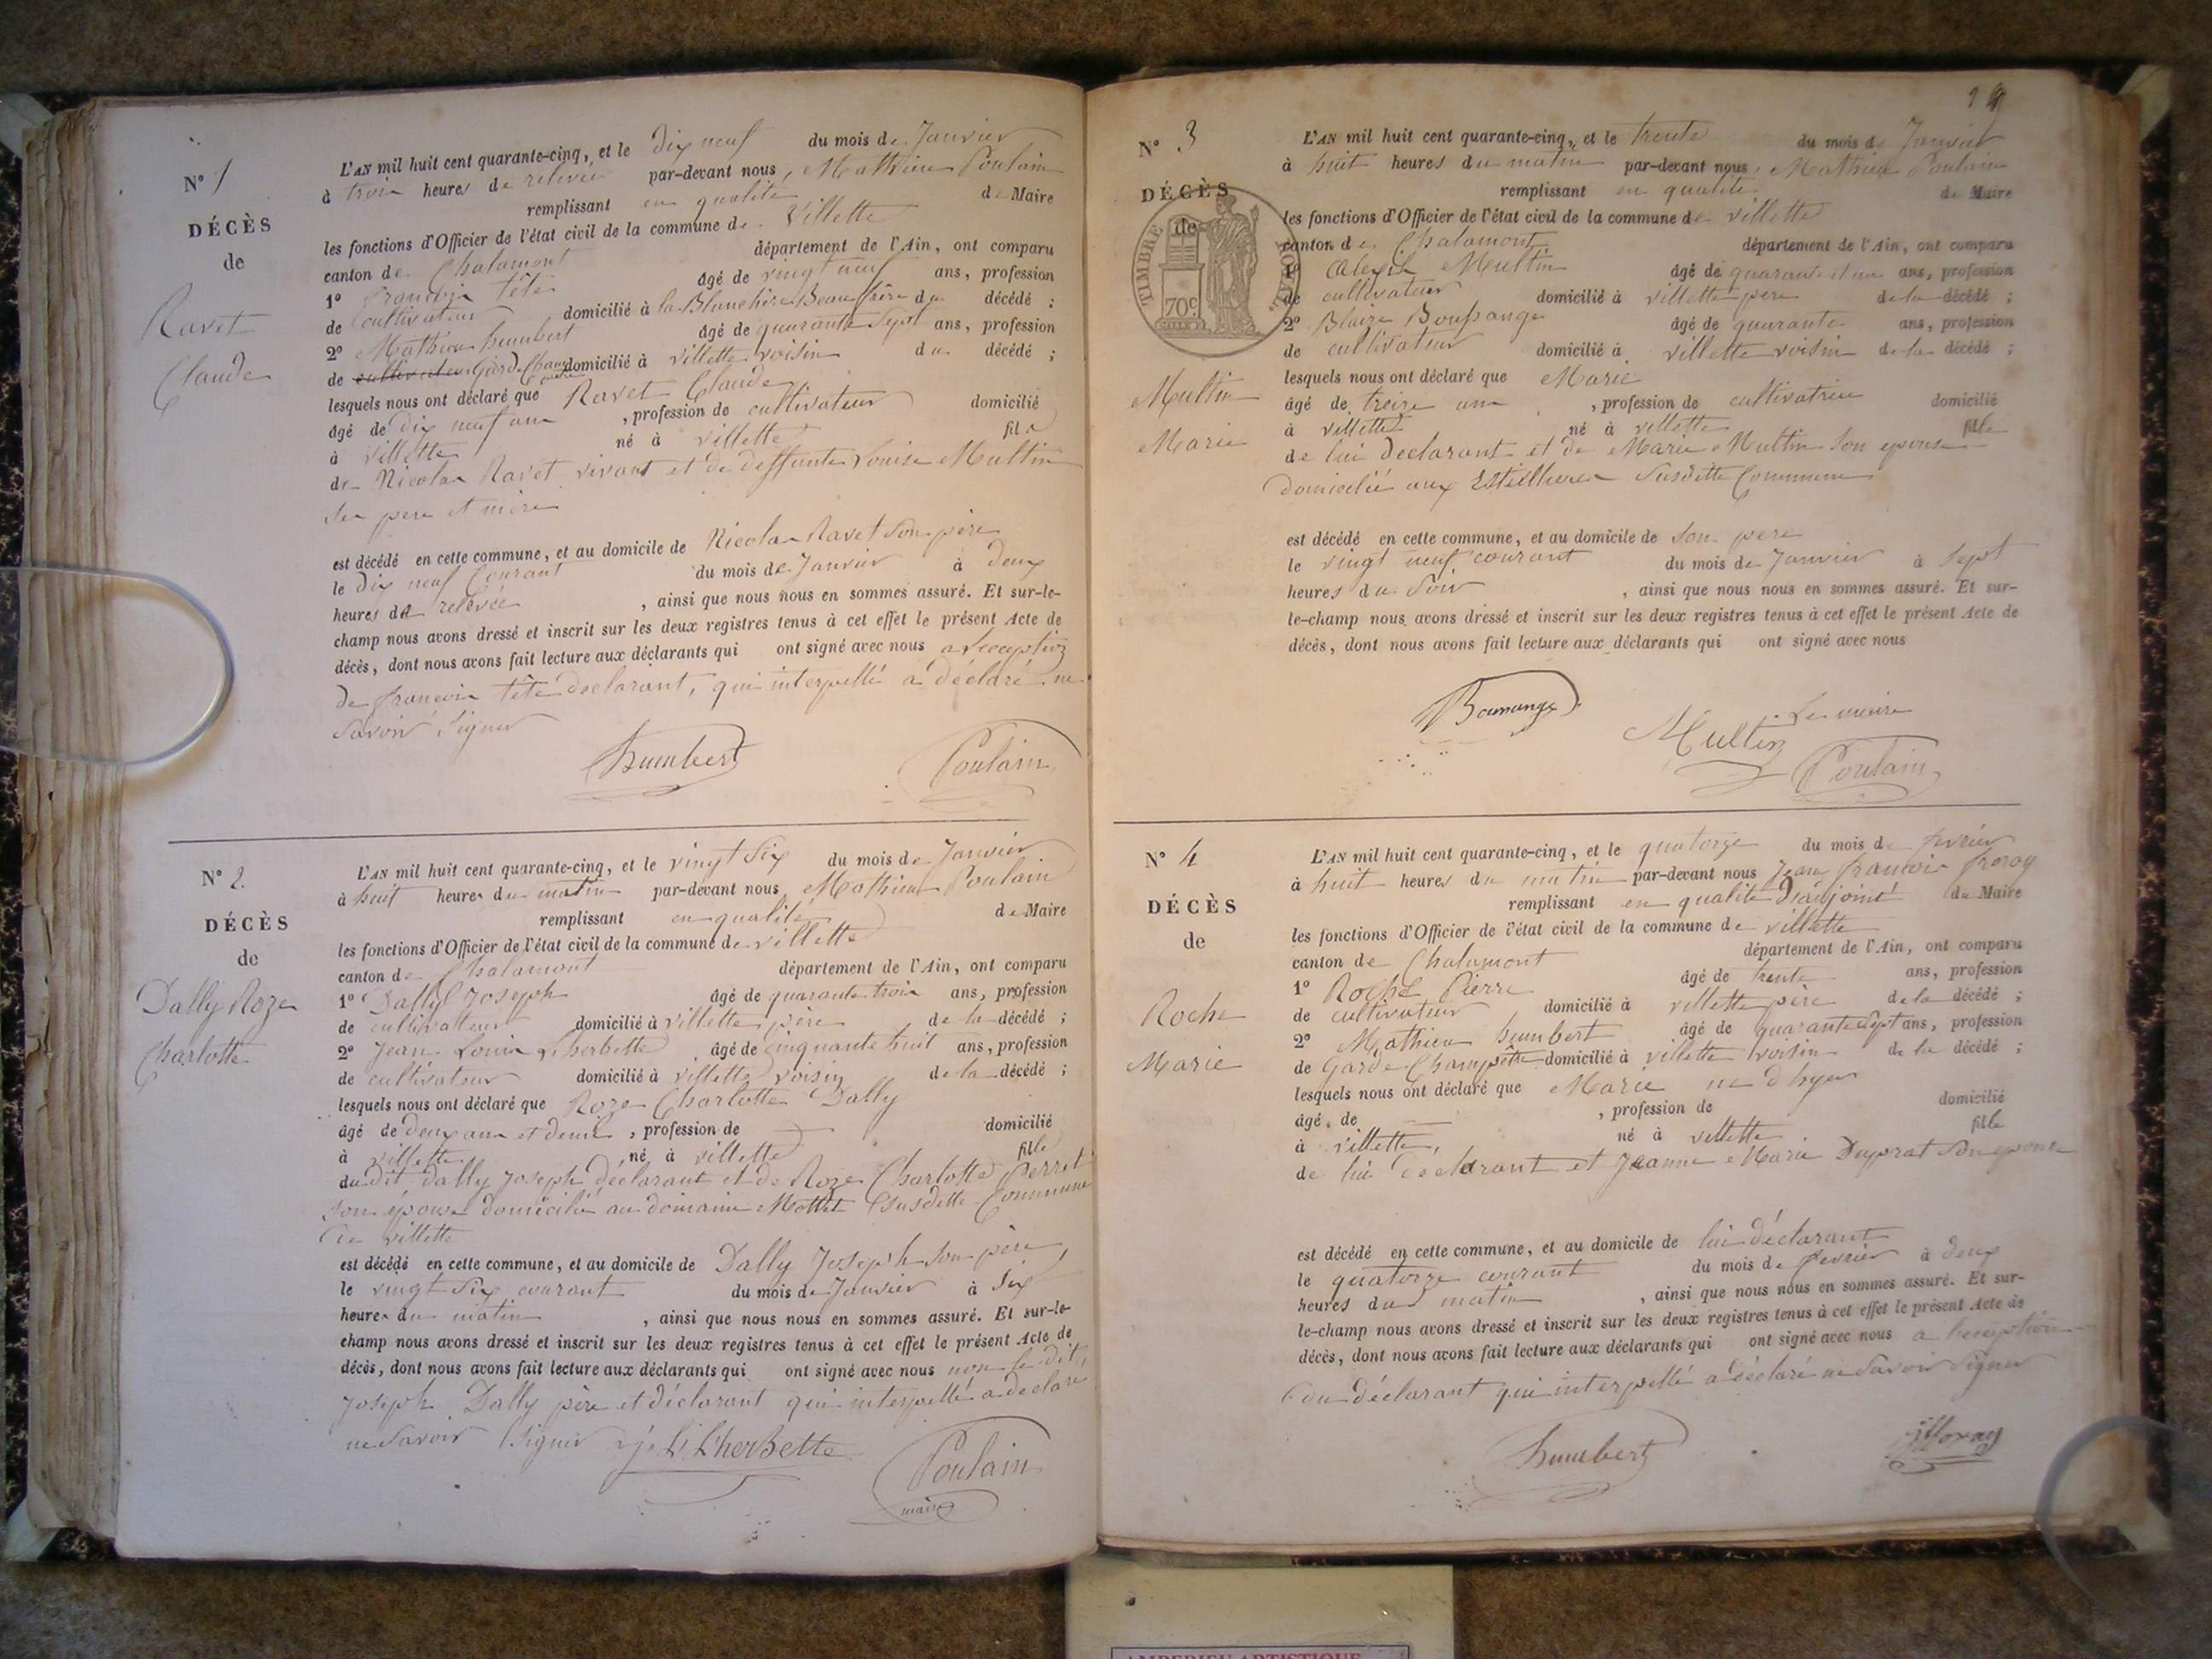 N° 1
DÉCÈS
de
Ravet
Claude
L'AN mil huit cent quarante-cinq, et le dix neuf du mois de Janvier
à trois heures de relevée par-devant nous, Mathieu Poulain
remplissant en qualité de Maire
les fonctions d'Officier de l'état civil de la commune de Villette
canton de Chalamont département de l'Ain, ont comparu
1° francois tête âgé de vingt neuf ans, profession
de cultivateur domicilié à la Blanchère Beau frère du décédé ;
2° Mathieu humbert âgé de quarante Sept ans, profession
de cultivateur Garde Champêtre domicilié à villette voisin du décédé ;
lesquels nous ont déclaré que Ravet Claude
âgé de dix neuf ans , profession de cultivateur domicilié
à villette né à villette fils
de Nicolas Ravet vivant et de deffunte Louise Multin
ses pere et mère
est décédé en cette commune, et au domicile de Nicolas Ravet Son père
le dix neuf Courant du mois de Janvier à deux
heures de relevée , ainsi que nous nous en sommes assuré. Et sur-le-
champ nous avons dressé et inscrit sur les deux registres tenus à cet effet le présent Acte de
décès, dont nous avons fait lecture aux déclarants qui ont signé avec nous a lexception
de francois tête declarant, qui interpellé a déclaré ne
Savoir Signer
humbert Poulain
N° 2.
DÉCÈS
de
Dally Roze
Charlotte
L'AN mil huit cent quarante-cinq, et le vingt Six du mois de Janvier
à huit heures du matin par-devant nous, Mathieu Poulain
remplissant en qualité de Maire
les fonctions d'Officier de l'état civil de la commune de villette
canton de Chalamont département de l'Ain, ont comparu
1° Dally Joseph âgé de quarante trois ans, profession
de cultivateur domicilié à villette père de la décédé ;
2° Jean Louis Lherbette âgé de cinquante huit ans, profession
de cultivateur domicilié à villette voisin de la décédé ;
lesquels nous ont déclaré que Roze Charlotte Dally
âgé de deux ans et demi , profession de domicilié
à villette né à villette fille
du dit Dally Joseph déclarant et de Roze Charlotte Perret
Son épouse domicilié au domaine Mottet Susdette Commune
de villette
est décédé en cette commune, et au domicile de Dally Joseph Son père,
le vingt Six courant du mois de Janvier à Six
heures du matin , ainsi que nous nous en sommes assuré. Et sur-le-
champ nous avons dressé et inscrit sur les deux registres tenus à cet effet le présent Acte de
décès, dont nous avons fait lecture aux déclarants qui ont signé avec nous non le dit,
Joseph Dally père et déclarant qui interpellé a declaré
ne Savoir Signer j. L. L'herbette Poulain
maire
N° 3
DÉCÈS
de
TIMBRE ROYAL
70c
Multin
Marie
L'AN mil huit cent quarante-cinq, et le trente du mois de Janvier
à huit heures du matin par-devant nous, Mathieu Poulain
remplissant en qualité de Maire
les fonctions d'Officier de l'état civil de la commune de villette
canton de Chalamont département de l'Ain, ont comparu
1° Alexis Multin âgé de quarante et un ans, profession
de cultivateur domicilié à villette pere de la décédé ;
2° Blaize Boussange âgé de quarante ans, profession
de cultivateur domicilié à villette voisin de la décédé ;
lesquels nous ont déclaré que Marie
âgé de treize ans , profession de cultivatrice domicilié
à villette né à villette fille
de lui declarant et de Marie Multin Son epouse
domicilié aux Susdette Commune
est décédé en cette commune, et au domicile de Son pere
le vingt neuf courant du mois de Janvier à Sept
heures du Soir , ainsi que nous nous en sommes assuré. Et sur-
le-champ nous avons dressé et inscrit sur les deux registres tenus à cet effet le présent Acte de
décès, dont nous avons fait lecture aux déclarants qui ont signé avec nous
Le maire
Multin
Poulain
N° 4
DÉCÈS
de
Roche
Marie
L'AN mil huit cent quarante-cinq, et le quatorze du mois de fevrier
à huit heures du matin par-devant nous Jean francois
remplissant en qualité D'adjoint de Maire
les fonctions d'Officier de l'état civil de la commune de villette
canton de Chalamont département de l'Ain, ont comparu
1° Roche Pierre âgé de trente ans, profession
de cultivateur domicilié à villette père de la décédé ;
2° Mathieu humbert âgé de quarante Sept ans, profession
de Garde Champêtre domicilié à villette voisin de la décédé ;
lesquels nous ont déclaré que Marie ne d'hyer
âgé de , profession de domicilié
à villette, né à villette fille
de lui declarant et Jeanne Marie Duprat Son epouse
est décédé en cette commune, et au domicile de lui déclarant
le quatorze courant du mois de fevrier à deux
heures du matin , ainsi que nous nous en sommes assuré. Et sur-
le-champ nous avons dressé et inscrit sur les deux registres tenus à cet effet le présent Acte de
décès, dont nous avons fait lecture aux déclarants qui ont signé avec nous a lexception
du déclarant qui interpellé a déclaré ne Savoir Signer
humbert